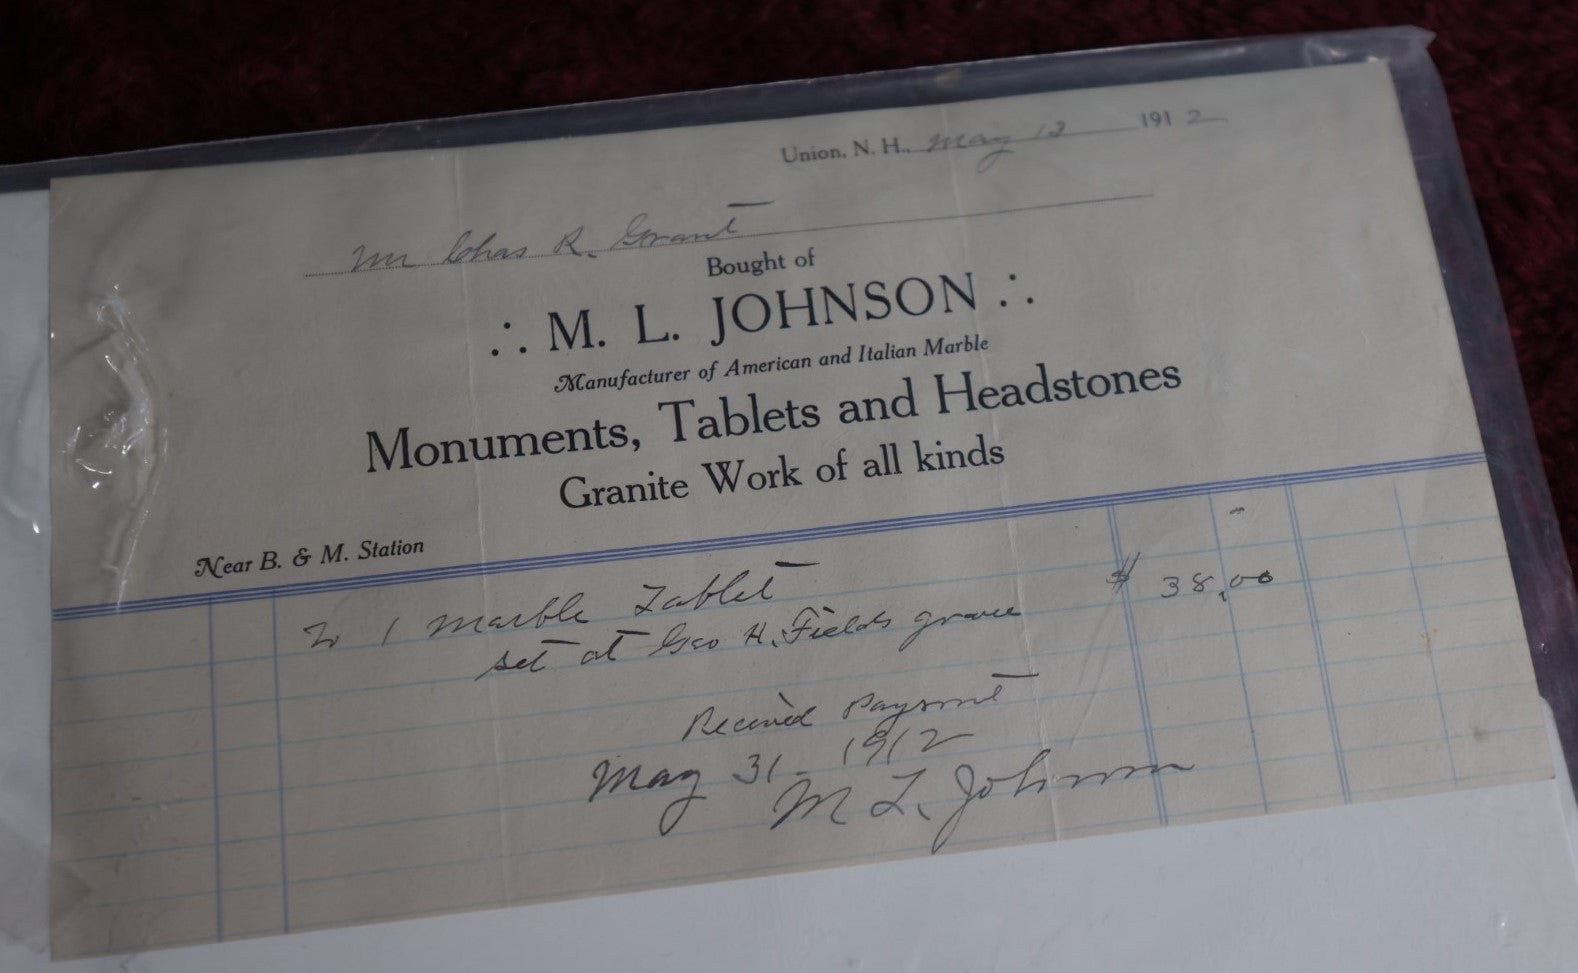 Union, N. H., May 13 1912
Mr Chas R. Grant
Bought of
∴ M. L. JOHNSON ∴
Manufacturer of American and Italian Marble
Monuments, Tablets and Headstones
Granite Work of all kinds
Near B. & M. Station
To 1 Marble Tablet $ 38.00
set at Geo H. Fields grave
Received Payment
May 31 - 1912
M L. Johnson